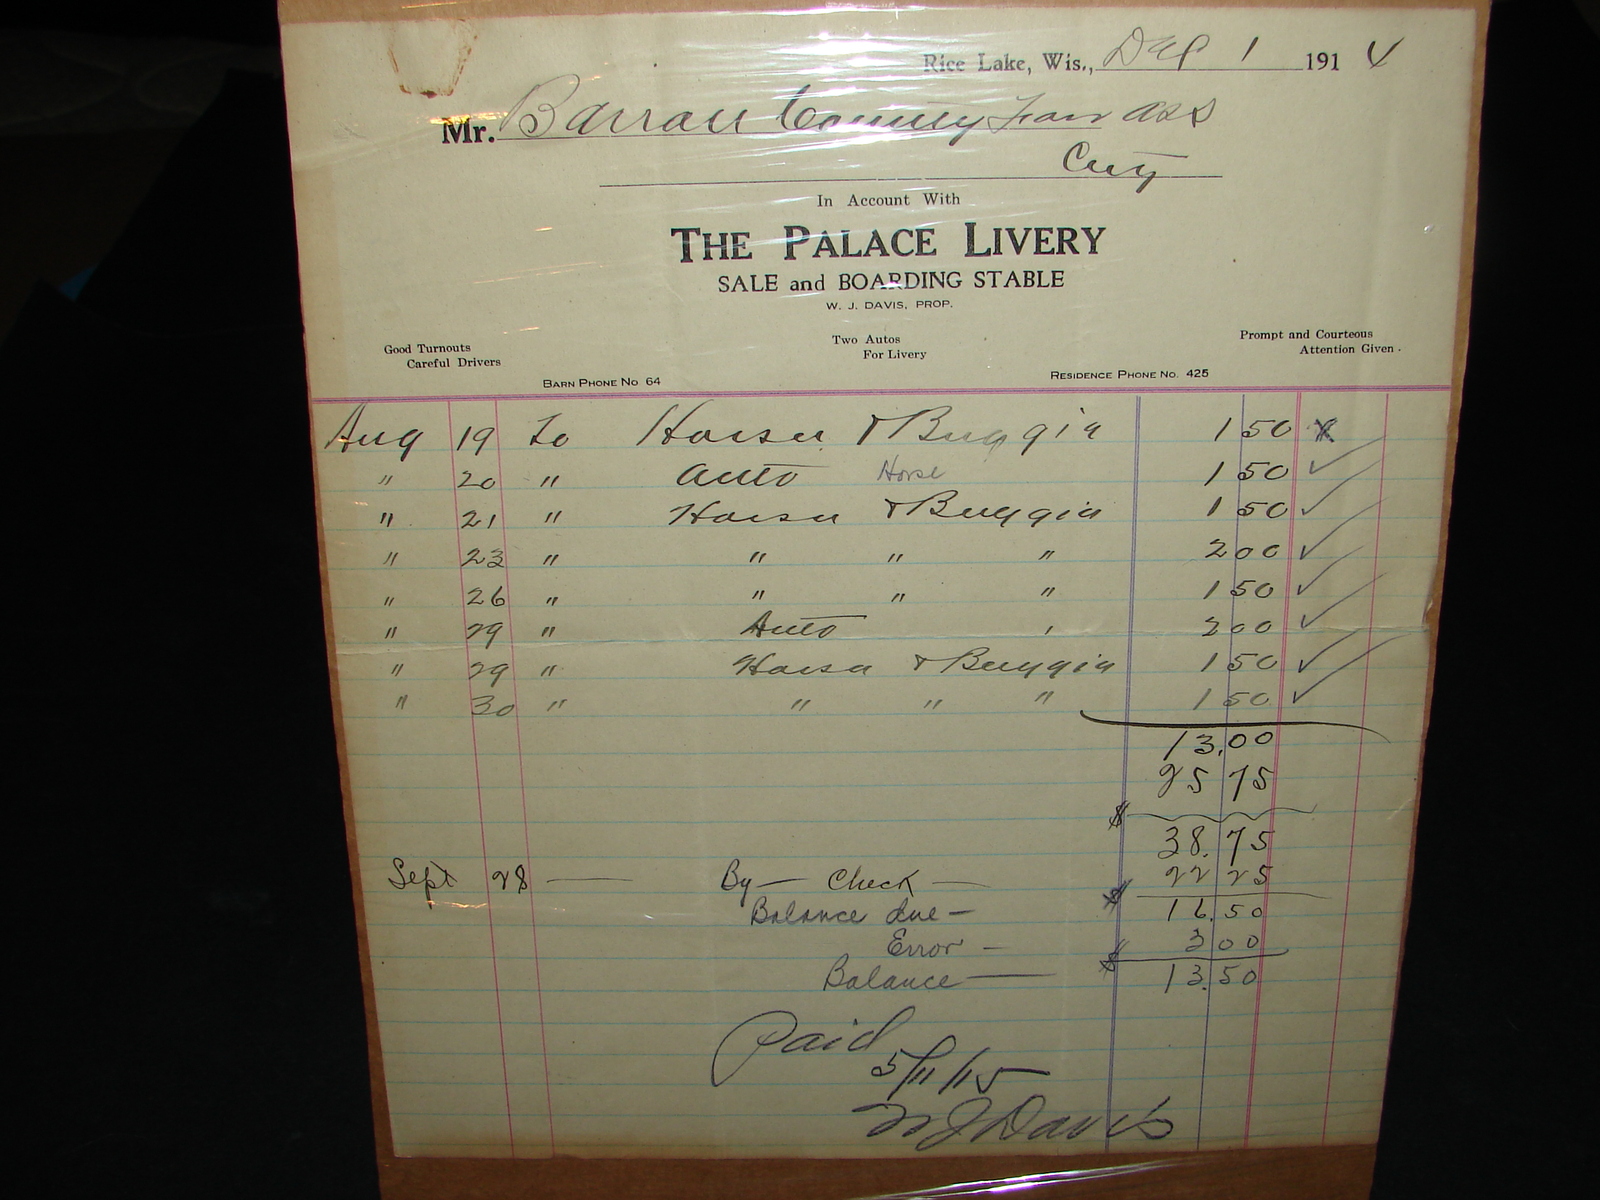 Rice Lake, Wis., Sep 1 1914
Mr. Barron County Fair ass
City
In Account With
THE PALACE LIVERY
SALE and BOARDING STABLE
W. J. DAVIS, PROP.
Good Turnouts
Careful Drivers
Two Autos
For Livery
Prompt and Courteous
Attention Given.
BARN PHONE NO 64
RESIDENCE PHONE NO. 425
Aug 19 To Horse & Buggie 1 50 x
" 20 " Auto Horse 1 50 ✓
" 21 " Horse & Buggie 1 50 ✓
" 23 " " " " 2 00 ✓
" 26 " " " " 1 50 ✓
" 29 " Auto " 2 00 ✓
" 29 " Horse & Buggie 1 50 ✓
" 30 " " " " 1 50 ✓
13.00
25 75
$ 38.75
Sept 28 — By — Check — 22 25
Balance due — $ 16.50
Error — 3 00
Balance — $ 13.50
Paid
5/11/15
W J Davis